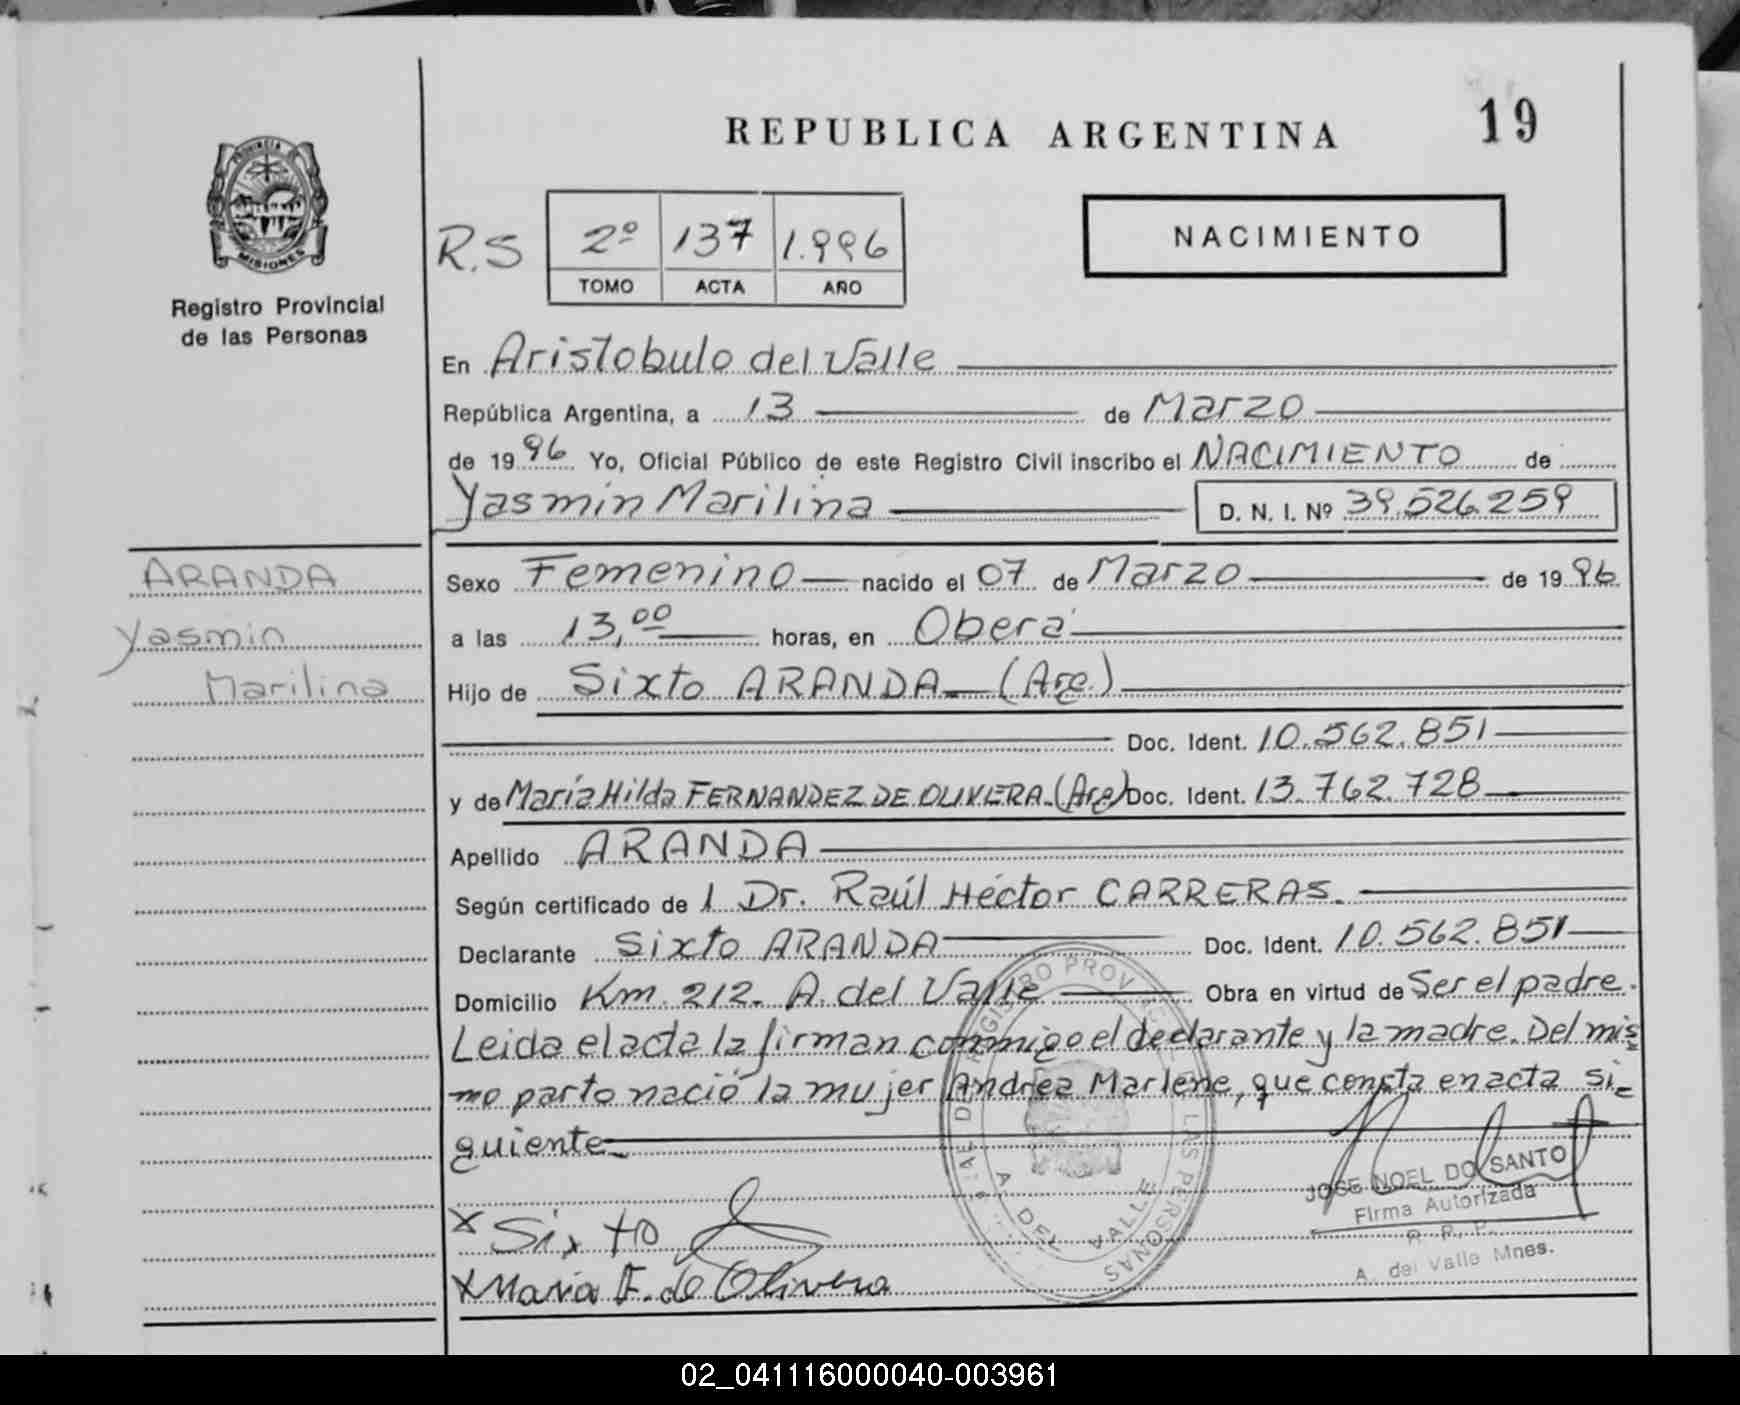 REPUBLICA ARGENTINA
19
PROVINCIA DE
MISIONES
Registro Provincial
de las Personas
R.S
2º 137 1.996
TOMO ACTA AÑO
NACIMIENTO
En Aristobulo del Valle
República Argentina, a 13 de Marzo
de 1996 Yo, Oficial Público de este Registro Civil inscribo el NACIMIENTO de
Yasmin Marilina D. N. I. Nº 39.526.259
ARANDA
Yasmin
Marilina
Sexo Femenino nacido el 07 de Marzo de 1996
a las 13,00 horas, en Oberá
Hijo de Sixto ARANDA (Arg.)
Doc. Ident. 10.562.851
y de María Hilda FERNANDEZ DE OLIVERA (Arg) Doc. Ident. 13.762.728
Apellido ARANDA
Según certificado de l Dr. Raúl Héctor CARRERAS.
Declarante Sixto ARANDA Doc. Ident. 10.562.851
Domicilio Km. 212- A. del Valle Obra en virtud de Ser el padre.
Leida el acta la firman conmigo el declarante y la madre. Del mis
mo parto nació la mujer Andrea Marlene, que consta en acta si-
guiente
REGISTRO PROVINCIAL DE LAS PERSONAS
A. DEL VALLE
JOSE NOEL DO SANTO
Firma Autorizada
R. P. P.
A. del Valle Mnes.
x Sixto
x Maria F. de Olivera
02_041116000040-003961